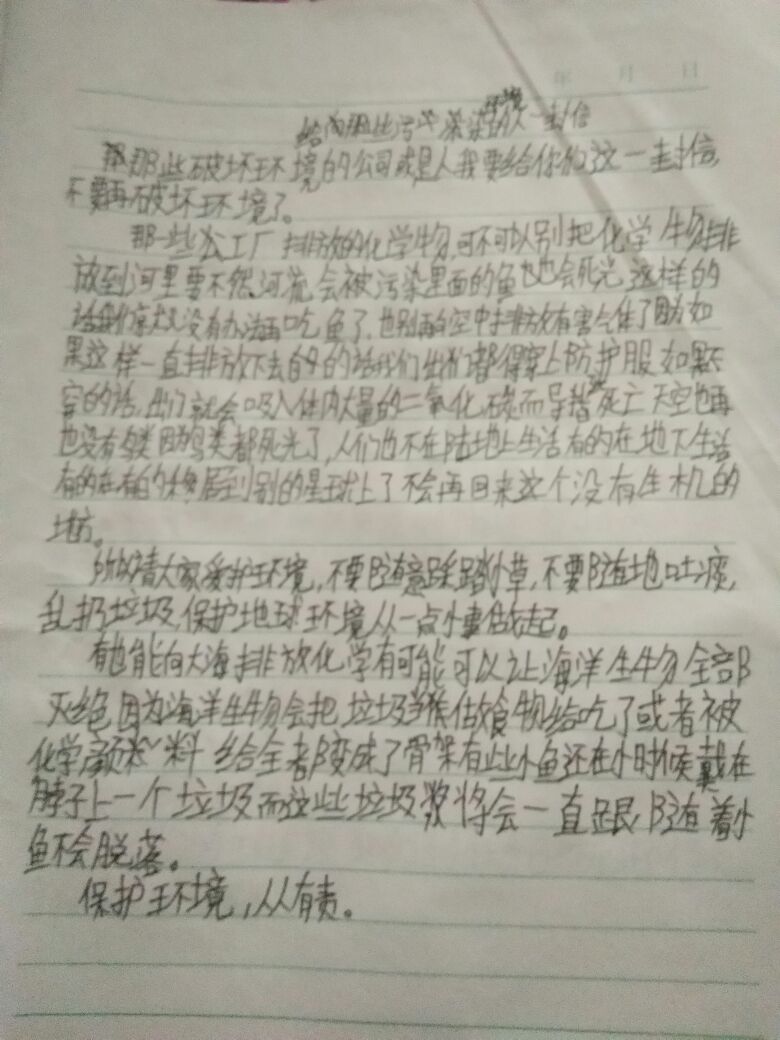 年 月 日
给向那些污染环境的人一封信
那些破坏环境的公司或是人我要给你们这一封信,
不要再破坏环境了。
那一些工厂排放的化学物,可不可以别把化学物排
放到河里要不然,河流会被污染里面的鱼也会死光,这样的
话大家又没有办法再吃鱼了,也别再向空中排放有害气体了因为如
果这样一直排放下去的话我们出们都得穿上防护服,如果不
穿的话,出们就会吸入体内大量的二氧化碳而导致死亡天空也再
也没有鸟类因为鸟类都死光了,人们也不在陆地上生活有的在地下生活
有的在有的移居到别的星球上了不会再回来这个没有生机的
地方。
所以请大家爱护环境,不要随意踩踏小草,不要随地吐痰,
乱扔垃圾,保护地球环境从一点小事做起。
也能向大海排放化学有可能可以让海洋生物全部
灭绝因为海洋生物会把垃圾当做食物给吃了或者被
化学颜料给全都变成了骨架有些小鱼还在小时候戴在
脖子上一个垃圾而这些垃圾将会一直跟随着小
鱼不会脱落。
保护环境,人人有责。